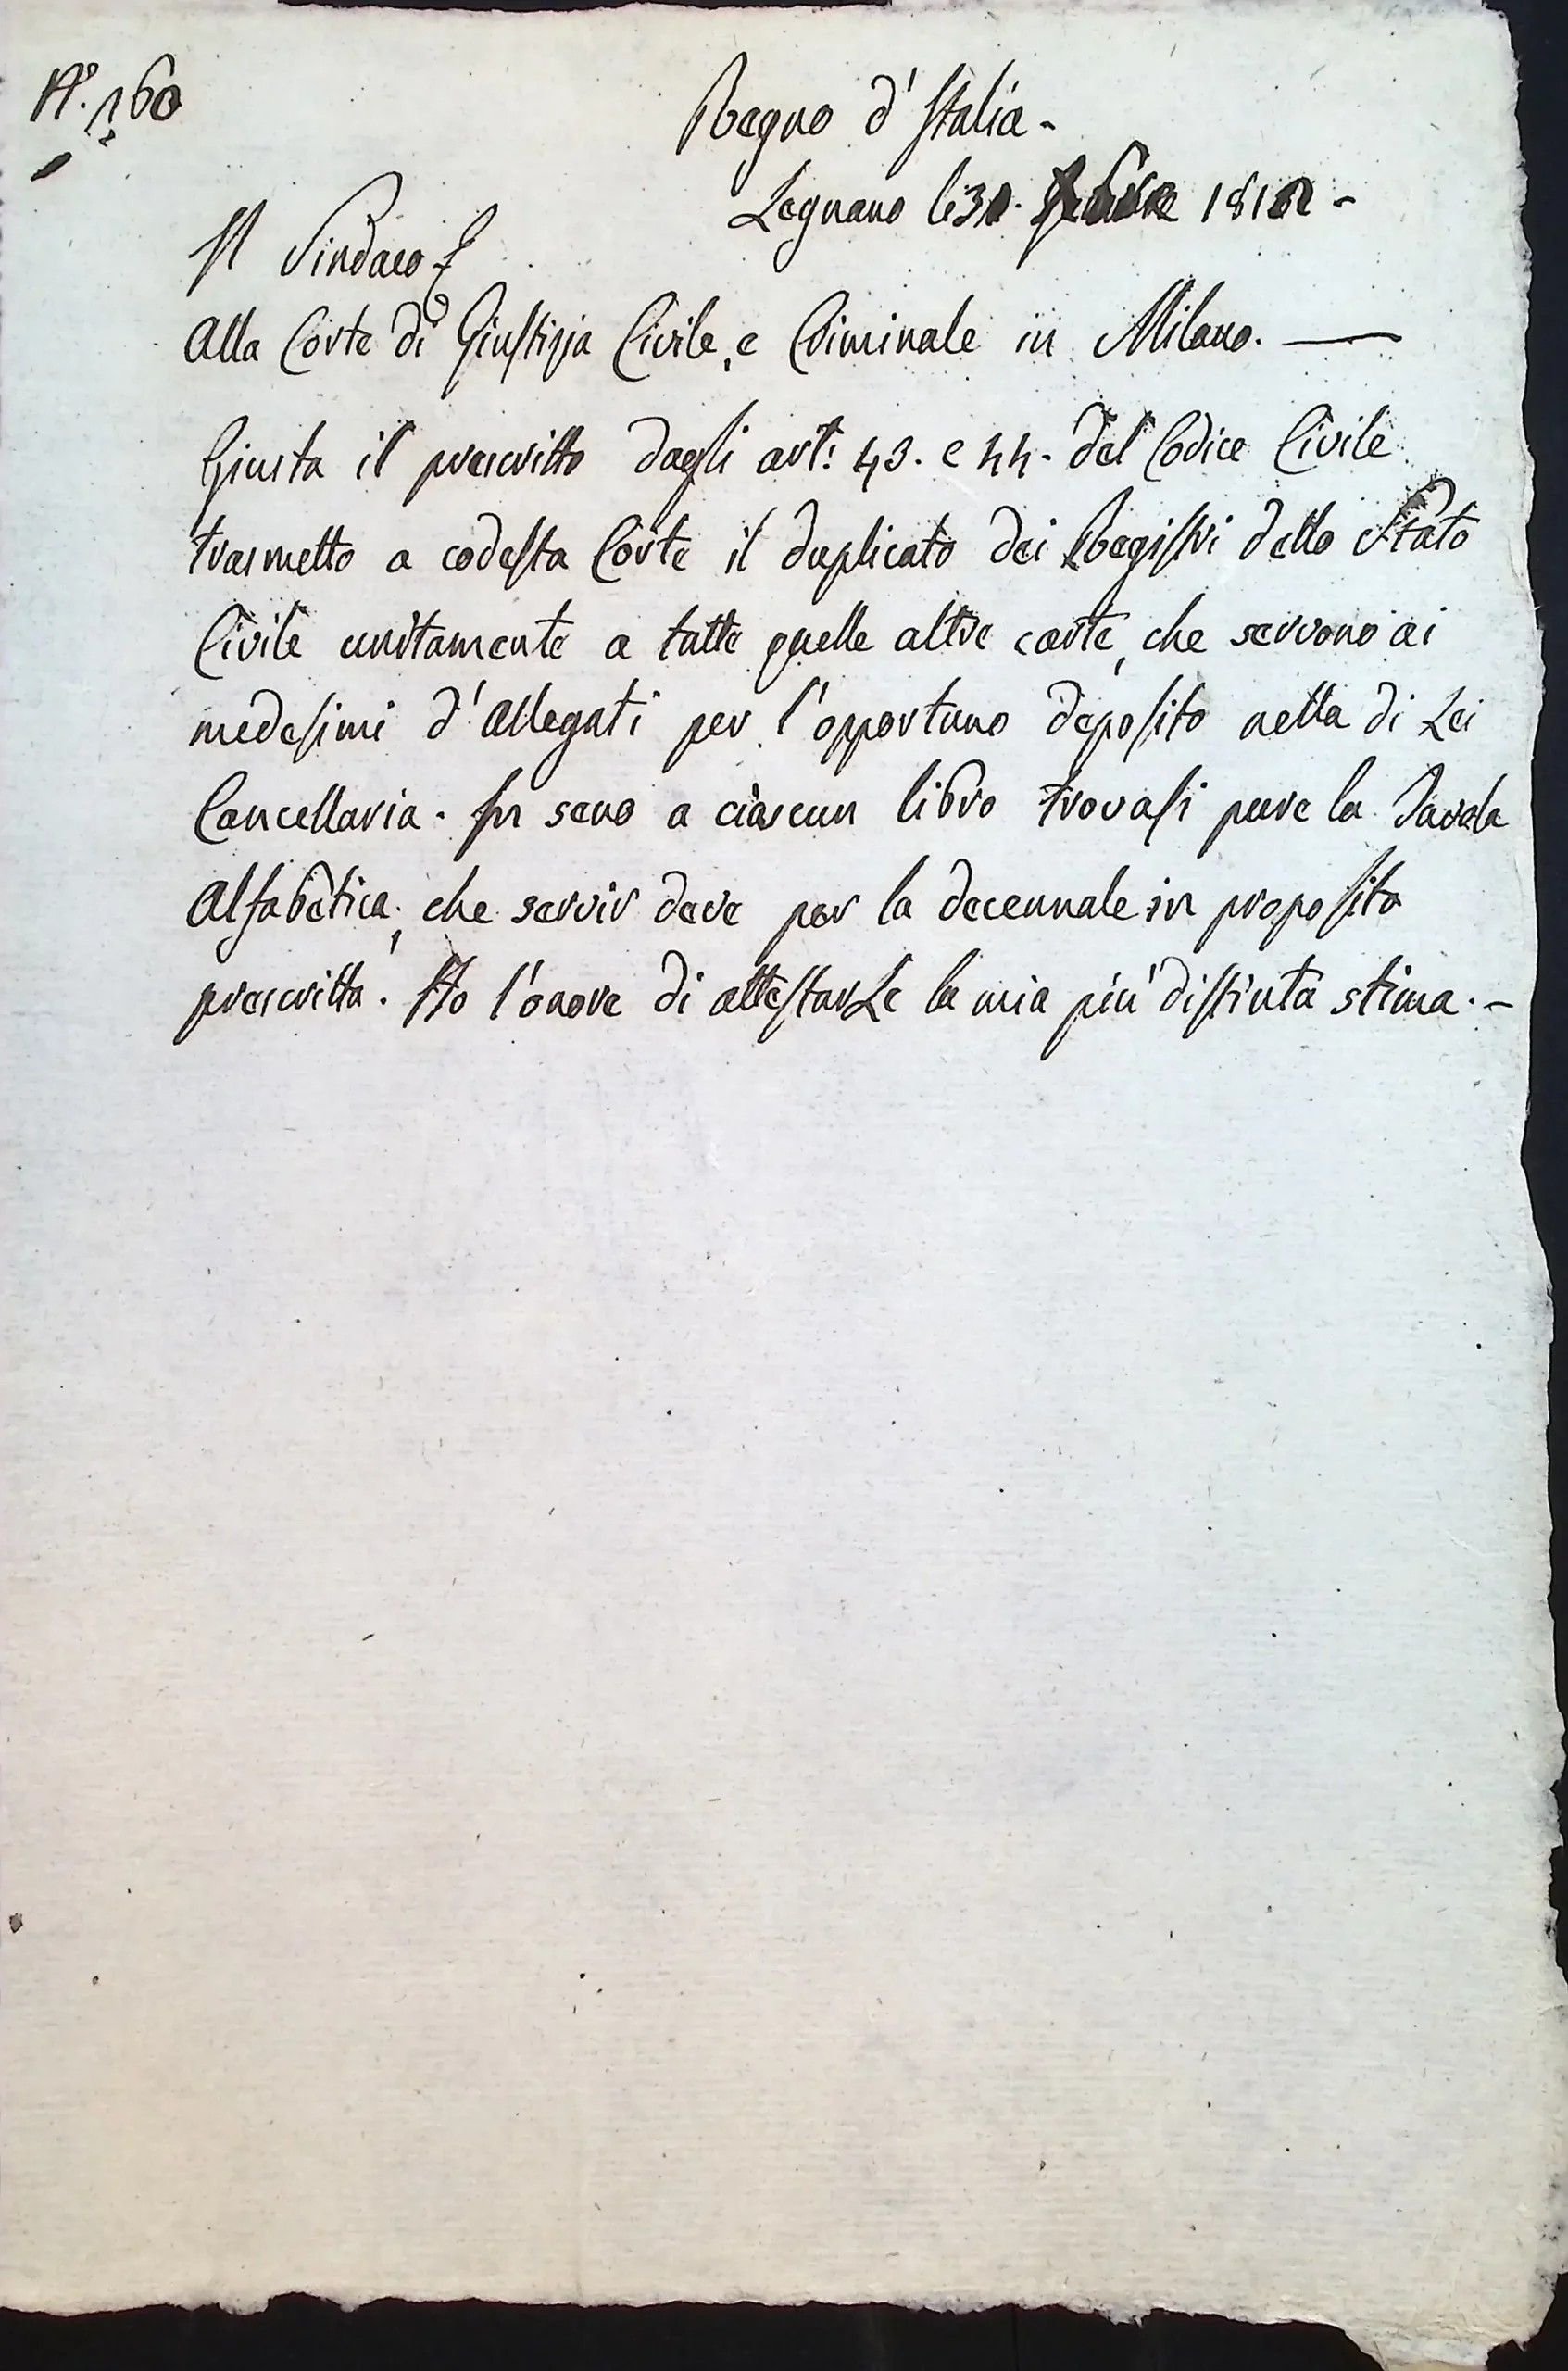 N.° 160
Regno d'Italia -
Legnano li 31. 1812 -
Il Sindaco
Alla Corte di Giustizia Civile, e Criminale in Milano. —
Giusta il prescritto dagli art.i 43. e 44. del Codice Civile
trasmetto a codesta Corte il duplicato dei Registri dello Stato
Civile unitamente a tutte quelle altre carte, che servono ai
medesimi d'Allegati per l'opportuno deposito nella di Lei
Cancellaria. In seno a ciascun libro trovasi pure la Tavola
Alfabetica, che servir deve per la decennale in proposito
prescritta. Ho l'onore di attestarLe la mia più distinta stima. -